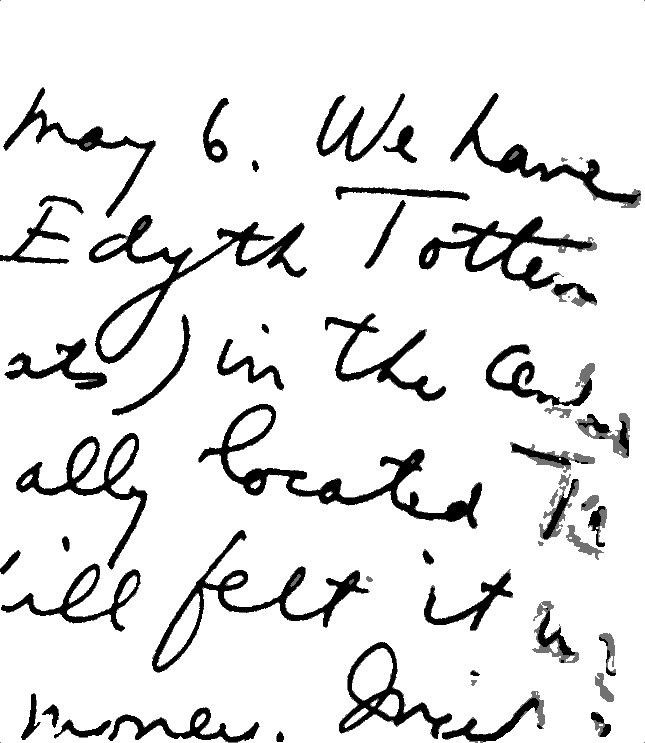 May 6. We have
Edyth Totten
ats) in the
ally located
ill felt it
money.